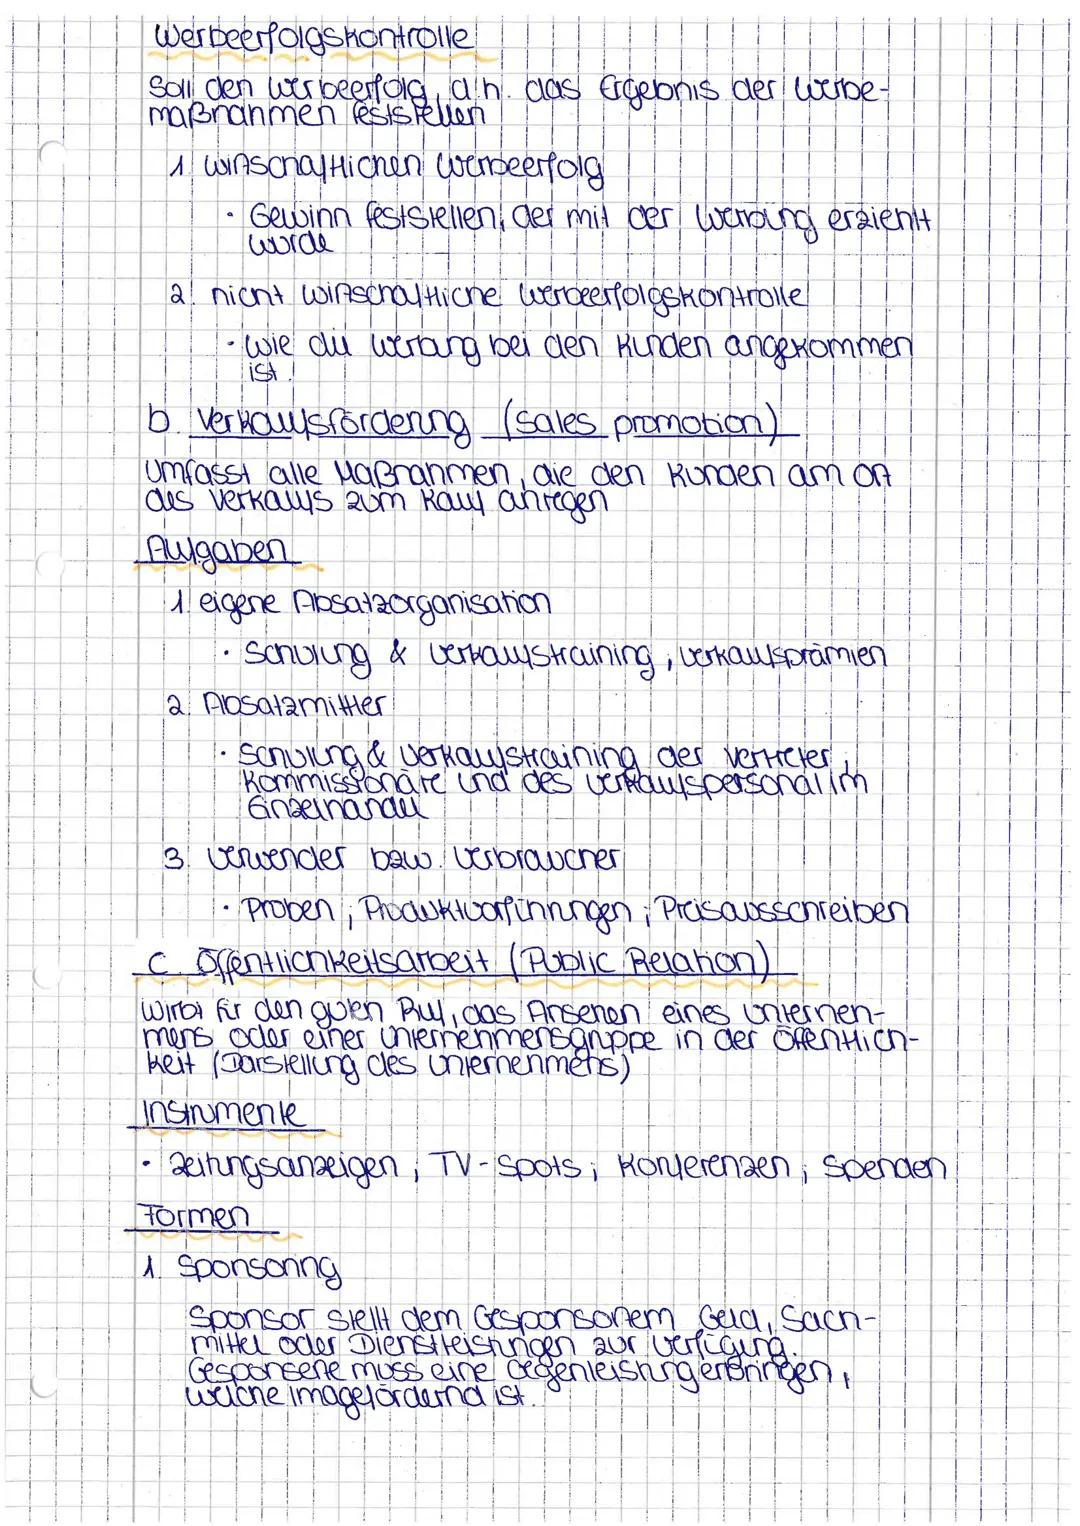 Werbeerfolgskontrolle
Soll den Werbeerfolg, d.h. das Ergebnis der Werbe-
maßnahmen feststellen
1. wirtschaftlichen Werbeerfolg
• Gewinn feststellen, der mit der Werbung erziehlt
wurde
2. nicht wirtschaftliche Werbeerfolgskontrolle
• Wie die Werbung bei den Kunden angekommen
ist.
b. Verkaufsförderung (sales promotion)
Umfasst alle Maßnahmen, die den Kunden am Ort
des Verkaufs zum Kauf anregen
Aufgaben
1. eigene Absatzorganisation
• Schulung & Verkaufstraining, Verkaufsprämien
2. Absatzmittler
• Schulung & Verkaufstraining der Vertreter,
Kommissionäre und des Verkaufspersonal im
Einzelhandel
3. Verwender bzw. Verbraucher
• Proben, Produktvorführungen, Preisausschreiben
c. Öffentlichkeitsarbeit (Public Relation)
Wirbt für den guten Ruf, das Ansehen eines Unterneh-
mens oder einer Unternehmensgruppe in der Öffentlich-
keit (Darstellung des Unternehmens)
Instrumente
• Zeitungsanzeigen, TV-Spots, Konferenzen, Spenden
Formen
1. Sponsoring
Sponsor stellt dem Gesponsorem Geld, Sach-
mittel oder Dienstleistungen zur Verfügung.
Gesponsene muss eine Gegenleistung erbringen,
welche imagefördernd ist.